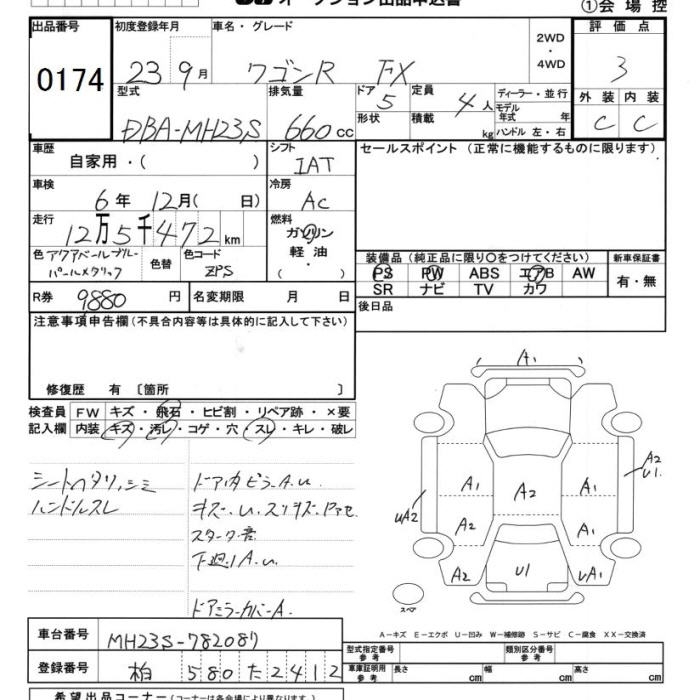 オークション出品申込書
①会場控
出品番号 0174
初度登録年月 23 9月
車名・グレード ワゴンR FX
2WD・4WD
評価点 3
型式 DBA-MH23S
排気量 660cc
ドア 5
形状
定員 4人
積載 kg
ディーラー・並行
モデル年式 年
ハンドル 左・右
外装 C
内装 C
車歴 自家用・( )
シフト IAT
セールスポイント(正常に機能するものに限ります)
車検 6年 12月( 日)
冷房 AC
走行 12万5千472km
燃料 ガソリン 軽油 ( ・ )
色 アクアベールブルーパールメタリック
色替
色コード ZPS
装備品(純正品に限り〇をつけてください)
新車保証書
PS PW ABS エアB AW
有・無
SR ナビ TV カワ
R券 9880円
名変期限 月 日
後日品
注意事項申告欄(不具合内容等は具体的に記入して下さい)
修復歴 有 〔箇所 〕
検査員記入欄
FW キズ・飛石・ヒビ割・リペア跡・×要
内装 キズ・汚レ・コゲ・穴・スレ・キレ・破レ
シートヘタリ、シミ
ハンドルスレ
ドア内ピラーA.U.
キズー.U.スリキズ
スターター音
下廻りA.U.
ドアミラーカバーA.
A1
A2
U1.
A1
A1
A2
UA2
A2
A1
A2
U1
UA1
スペア
A-キズ E-エクボ U-凹み W-補修跡 S-サビ C-腐食 XX-交換済
車台番号 MH23S-782087
登録番号 柏 580 た 2412
型式指定番号 参考
類別区分番号 参考
車庫証明用 参考 長さ cm 幅 cm 高さ cm
希望出品コーナー(コーナーは各会場により異なります)